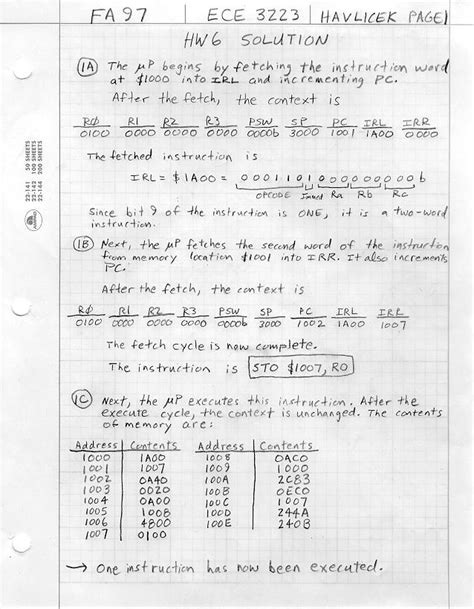 FA97 | ECE 3223 | HAVLICEK PAGE 1
HW6 SOLUTION
1A The μP begins by fetching the instruction word
at $1000 into IRL and incrementing PC.
After the fetch, the context is
RØ R1 R2 R3 PSW SP PC IRL IRR
0100 0000 0000 0000 0000b 3000 1001 1A00 0000
The fetched instruction is
IRL = $1A00 = 0001101000000000b
OPCODE Immed Ra Rb Rc
Since bit 9 of the instruction is ONE, it is a two-word
instruction.
1B Next, the μP fetches the second word of the instruction
from memory location $1001 into IRR. It also increments
PC.
After the fetch, the context is
RØ R1 R2 R3 PSW SP PC IRL IRR
0100 0000 0000 0000 0000b 3000 1002 1A00 1007
The fetch cycle is now complete.
The instruction is STO $1007, R0
1C Next, the μP executes this instruction. After the
execute cycle, the context is unchanged. The contents
of memory are:
Address Contents Address Contents
1000 1A00 1008 0AC0
1001 1007 1009 1000
1002 0A40 100A 2C83
1003 0020 100B 0EC0
1004 0A00 100C 1007
1005 1008 100D 244A
1006 4800 100E 2408
1007 0100
→ One instruction has now been executed.
22-141 50 SHEETS
22-142 100 SHEETS
22-144 200 SHEETS